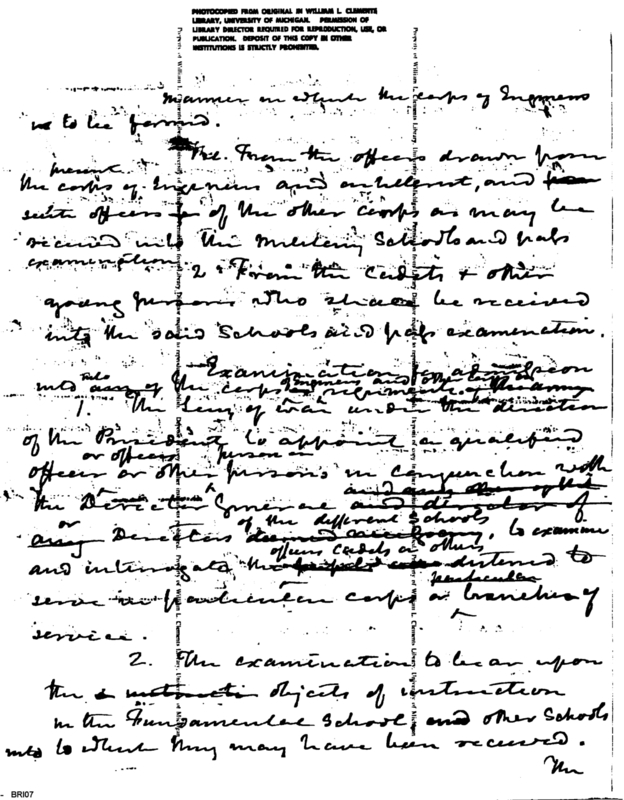 PHOTOCOPIED FROM ORIGINAL IN WILLIAM L. CLEMENTS
LIBRARY, UNIVERSITY OF MICHIGAN. PERMISSION OF
LIBRARY DIRECTOR REQUIRED FOR REPRODUCTION, USE, OR
PUBLICATION. DEPOSIT OF THIS COPY IN OTHER
INSTITUTIONS IS STRICTLY PROHIBITED.
Manner in which the corps of Engineers
is to be formed.
From the officers drawn from
present
the corps of Engineers and and
officers of the other corps as may be
received into the Military Schools and pass
examination.
2 From the Cadets & other
young persons who shall be received
into the said Schools and pass examination.
Examination admission
into any of the corps
Engineers and other corps
regiments of the army
1. The Secy of War under the direction
of the President to appoint a qualified
or officers person
officer or other persons in conjunction with
the Director General and director of
or of the different Schools
any Directors deemed necessary, to examine
officers Cadets or others
and interrogate the destined to
particular
serve in particular corps or branches of
service.
2. The examination to be upon
the objects of instruction
in the Fundamental School and other Schools
into to which they may have been received.
The
Property of William L. Clements Library, University of Michigan
BRI07